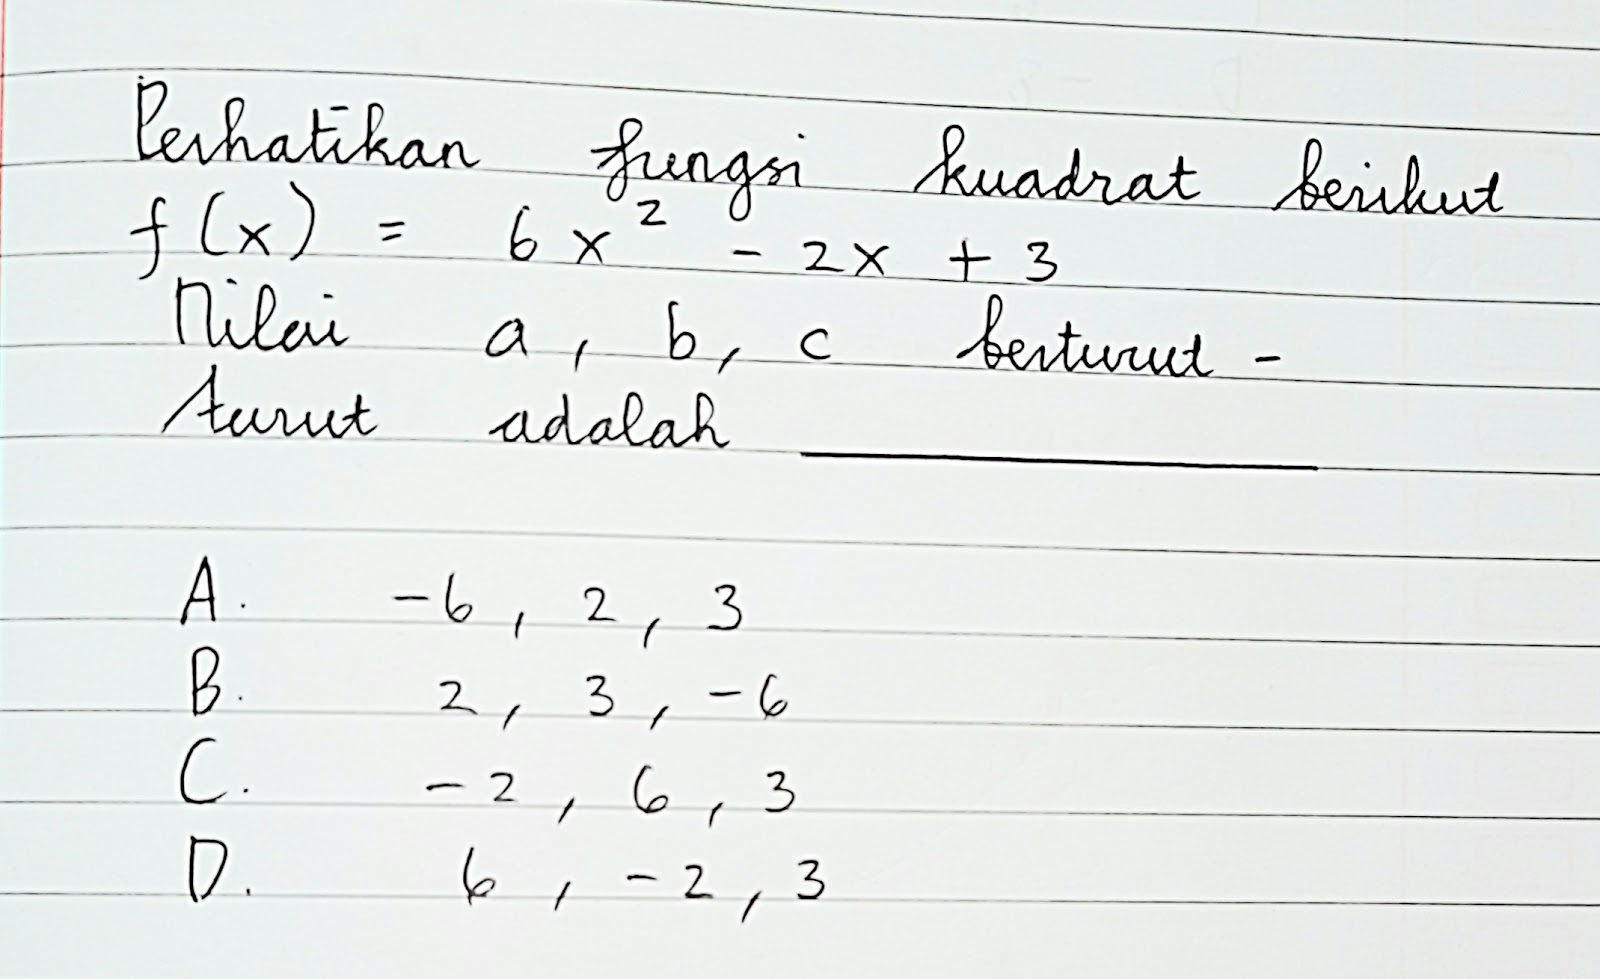 Perhatikan fungsi kuadrat berikut
f(x) = 6x² - 2x + 3
Nilai a, b, c berturut -
turut adalah ________
A. -6, 2, 3
B. 2, 3, -6
C. -2, 6, 3
D. 6, -2, 3